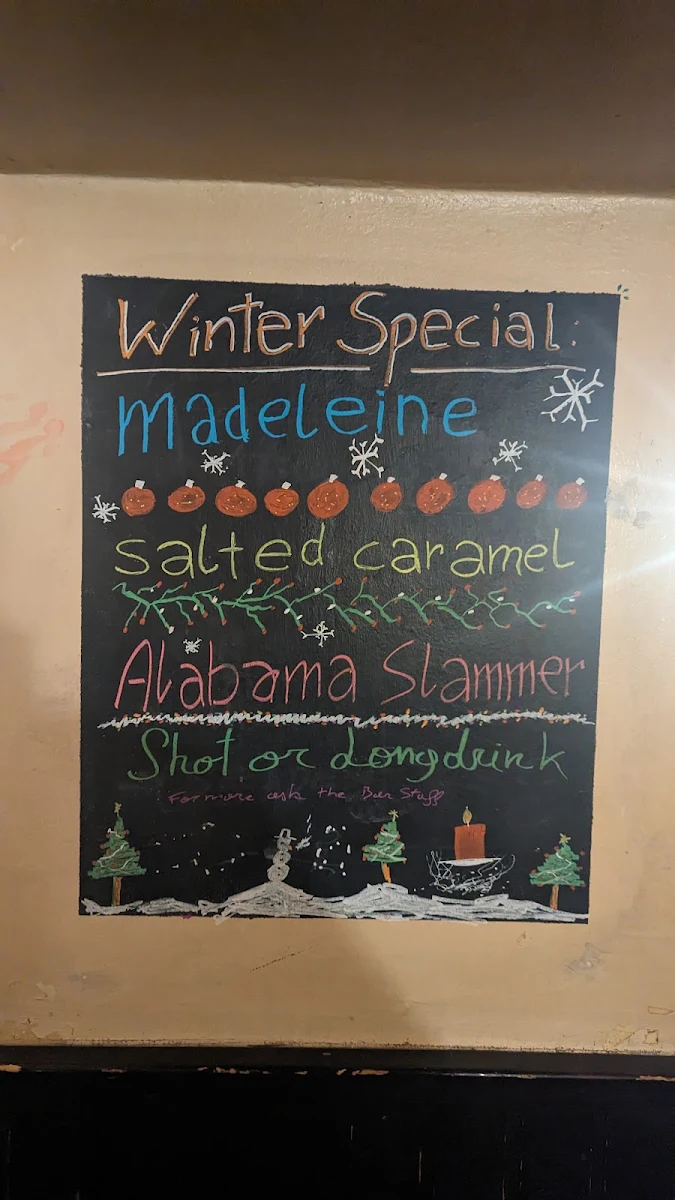 Winter Special:
madeleine
salted caramel
Alabama Slammer
Shot or Longdrink
For more ask the Bar Staff